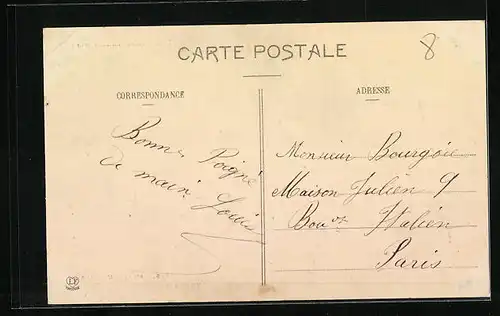 CARTE POSTALE
8
CORRESPONDANCE
ADRESSE
Bonne Poigné
de main
Louis
Monsieur Bourgoie
Maison Julien 9
Bou^t Italien
Paris